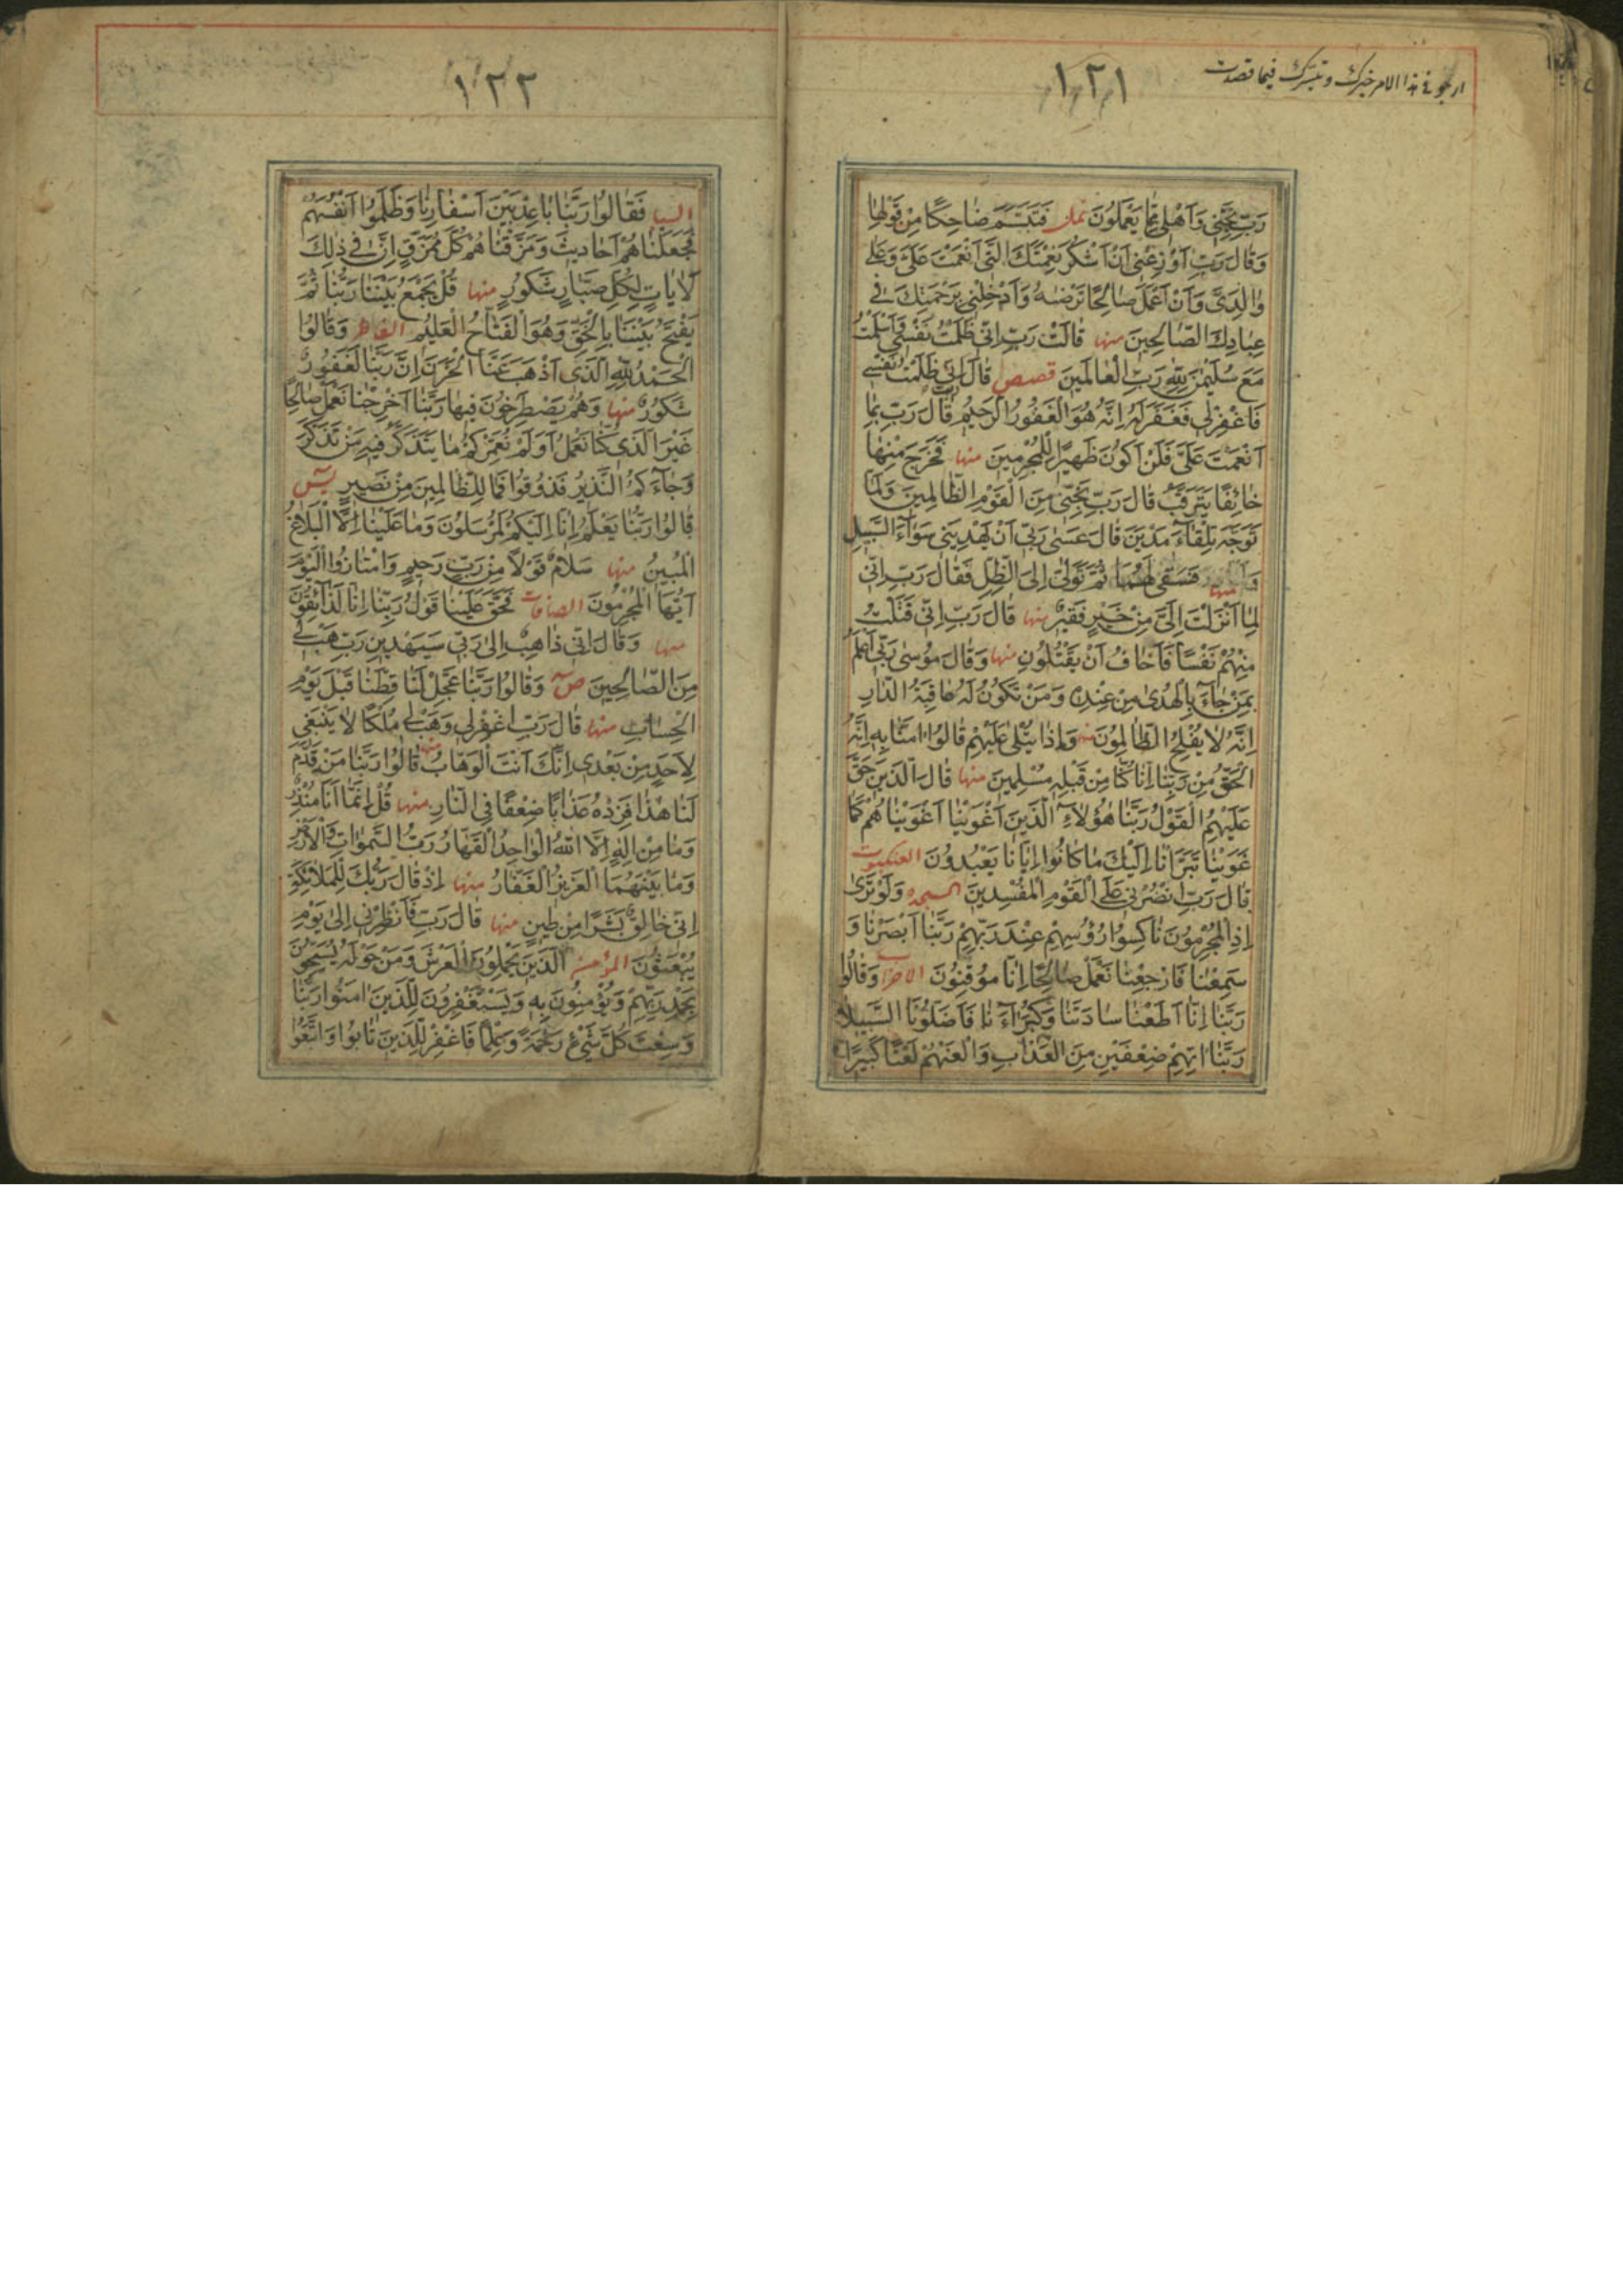 ارجو فی هذا الامر خیرک و تبرک فیما قصدت
۱۲۱
رَبِّ نَجِّنِي وَاَهْلِي مِمَّا يَعْمَلُونَ نمل فَتَبَسَّمَ ضَاحِكًا مِنْ قَوْلِهَا
وَقَالَ رَبِّ اَوْزِعْنِي اَنْ اَشْكُرَ نِعْمَتَكَ الَّتِي اَنْعَمْتَ عَلَيَّ وَعَلَى
وَالِدَيَّ وَاَنْ اَعْمَلَ صَالِحًا تَرْضٰيهُ وَاَدْخِلْنِي بِرَحْمَتِكَ فِي
عِبَادِكَ الصَّالِحِينَ منها قَالَتْ رَبِّ اِنِّي ظَلَمْتُ نَفْسِي وَاَسْلَمْتُ
مَعَ سُلَيْمٰنَ لِلّٰهِ رَبِّ الْعَالَمِينَ قصص قَالَ رَبِّ اِنِّي ظَلَمْتُ نَفْسِي
فَاغْفِرْ لِي فَغَفَرَ لَهُ اِنَّهُ هُوَ الْغَفُورُ الرَّحِيمُ قَالَ رَبِّ بِمَا
اَنْعَمْتَ عَلَيَّ فَلَنْ اَكُونَ ظَهِيرًا لِلْمُجْرِمِينَ منها فَخَرَجَ مِنْهَا
خَائِفًا يَتَرَقَّبُ قَالَ رَبِّ نَجِّنِي مِنَ الْقَوْمِ الظَّالِمِينَ وَلَمَّا
تَوَجَّهَ تِلْقَاءَ مَدْيَنَ قَالَ عَسٰى رَبِّي اَنْ يَهْدِيَنِي سَوَاءَ السَّبِيلِ
منها فَسَقٰى لَهُمَا ثُمَّ تَوَلّٰى اِلَى الظِّلِّ فَقَالَ رَبِّ اِنِّي
لِمَا اَنْزَلْتَ اِلَيَّ مِنْ خَيْرٍ فَقِيرٌ منها قَالَ رَبِّ اِنِّي قَتَلْتُ
مِنْهُمْ نَفْسًا فَاَخَافُ اَنْ يَقْتُلُونِ منها وَقَالَ مُوسٰى رَبِّي اَعْلَمُ
بِمَنْ جَاءَ بِالْهُدٰى مِنْ عِنْدِهِ وَمَنْ تَكُونُ لَهُ عَاقِبَةُ الدَّارِ
اِنَّهُ لَا يُفْلِحُ الظَّالِمُونَ منها وَاِذَا يُتْلٰى عَلَيْهِمْ قَالُوا اٰمَنَّا بِهِ اِنَّهُ
الْحَقُّ مِنْ رَبِّنَا اِنَّا كُنَّا مِنْ قَبْلِهِ مُسْلِمِينَ منها قَالَ الَّذِينَ حَقَّ
عَلَيْهِمُ الْقَوْلُ رَبَّنَا هٰؤُلَاءِ الَّذِينَ اَغْوَيْنَا اَغْوَيْنَاهُمْ كَمَا
غَوَيْنَا تَبَرَّأْنَا اِلَيْكَ مَا كَانُوا اِيَّانَا يَعْبُدُونَ العنكبوت
قَالَ رَبِّ انْصُرْنِي عَلَى الْقَوْمِ الْمُفْسِدِينَ السجده وَلَوْ تَرٰى
اِذِ الْمُجْرِمُونَ نَاكِسُوا رُؤُسِهِمْ عِنْدَ رَبِّهِمْ رَبَّنَا اَبْصَرْنَا وَ
سَمِعْنَا فَارْجِعْنَا نَعْمَلْ صَالِحًا اِنَّا مُوقِنُونَ الاحزاب وَقَالُوا
رَبَّنَا اِنَّا اَطَعْنَا سَادَتَنَا وَكُبَرَاءَنَا فَاَضَلُّونَا السَّبِيلَا
رَبَّنَا اٰتِهِمْ ضِعْفَيْنِ مِنَ الْعَذَابِ وَالْعَنْهُمْ لَعْنًا كَبِيرًا
۱۲۲
السبا فَقَالُوا رَبَّنَا بَاعِدْ بَيْنَ اَسْفَارِنَا وَظَلَمُوا اَنْفُسَهُمْ
فَجَعَلْنَاهُمْ اَحَادِيثَ وَمَزَّقْنَاهُمْ كُلَّ مُمَزَّقٍ اِنَّ فِي ذٰلِكَ
لَاٰيَاتٍ لِكُلِّ صَبَّارٍ شَكُورٍ منها قُلْ يَجْمَعُ بَيْنَنَا رَبُّنَا ثُمَّ
يَفْتَحُ بَيْنَنَا بِالْحَقِّ وَهُوَ الْفَتَّاحُ الْعَلِيمُ الفاطر وَقَالُوا
الْحَمْدُ لِلّٰهِ الَّذِي اَذْهَبَ عَنَّا الْحَزَنَ اِنَّ رَبَّنَا لَغَفُورٌ
شَكُورٌ منها وَهُمْ يَصْطَرِخُونَ فِيهَا رَبَّنَا اَخْرِجْنَا نَعْمَلْ صَالِحًا
غَيْرَ الَّذِي كُنَّا نَعْمَلُ اَوَلَمْ نُعَمِّرْكُمْ مَا يَتَذَكَّرُ فِيهِ مَنْ تَذَكَّرَ
وَجَاءَكُمُ النَّذِيرُ فَذُوقُوا فَمَا لِلظَّالِمِينَ مِنْ نَصِيرٍ يٰسٓ
قَالُوا رَبُّنَا يَعْلَمُ اِنَّا اِلَيْكُمْ لَمُرْسَلُونَ وَمَا عَلَيْنَا اِلَّا الْبَلَاغُ
الْمُبِينُ منها سَلَامٌ قَوْلًا مِنْ رَبٍّ رَحِيمٍ وَامْتَازُوا الْيَوْمَ
اَيُّهَا الْمُجْرِمُونَ الصافات فَحَقَّ عَلَيْنَا قَوْلُ رَبِّنَا اِنَّا لَذَائِقُونَ
منها وَقَالَ اِنِّي ذَاهِبٌ اِلٰى رَبِّي سَيَهْدِينِ رَبِّ هَبْ لِي
مِنَ الصَّالِحِينَ صٓ وَقَالُوا رَبَّنَا عَجِّلْ لَنَا قِطَّنَا قَبْلَ يَوْمِ
الْحِسَابِ منها قَالَ رَبِّ اغْفِرْ لِي وَهَبْ لِي مُلْكًا لَا يَنْبَغِي
لِاَحَدٍ مِنْ بَعْدِي اِنَّكَ اَنْتَ الْوَهَّابُ منها قَالُوا رَبَّنَا مَنْ قَدَّمَ
لَنَا هٰذَا فَزِدْهُ عَذَابًا ضِعْفًا فِي النَّارِ منها قُلْ اِنَّمَا اَنَا مُنْذِرٌ
وَمَا مِنْ اِلٰهٍ اِلَّا اللّٰهُ الْوَاحِدُ الْقَهَّارُ رَبُّ السَّمٰوَاتِ وَالْاَرْضِ
وَمَا بَيْنَهُمَا الْعَزِيزُ الْغَفَّارُ منها اِذْ قَالَ رَبُّكَ لِلْمَلَائِكَةِ
اِنِّي خَالِقٌ بَشَرًا مِنْ طِينٍ منها قَالَ رَبِّ فَاَنْظِرْنِي اِلٰى يَوْمِ
يُبْعَثُونَ المؤمن الَّذِينَ يَحْمِلُونَ الْعَرْشَ وَمَنْ حَوْلَهُ يُسَبِّحُونَ
بِحَمْدِ رَبِّهِمْ وَيُؤْمِنُونَ بِهِ وَيَسْتَغْفِرُونَ لِلَّذِينَ اٰمَنُوا رَبَّنَا
وَسِعْتَ كُلَّ شَيْءٍ رَحْمَةً وَعِلْمًا فَاغْفِرْ لِلَّذِينَ تَابُوا وَاتَّبَعُوا